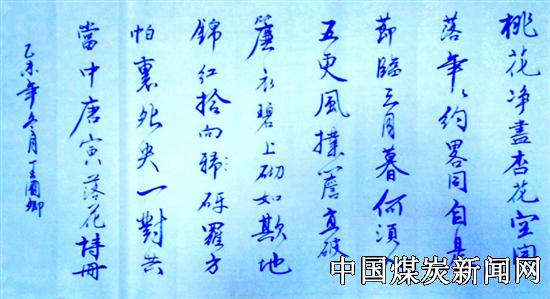 桃花净盡杏花空開
落年々約畧同自是
節臨三月暮何須
五更風撲簷直破
簾衣碧上砌如欺地
錦紅拾向砑羅方
帕裏央一對
當中唐寅落花詩冊
乙未年冬月
中国煤炭新闻网